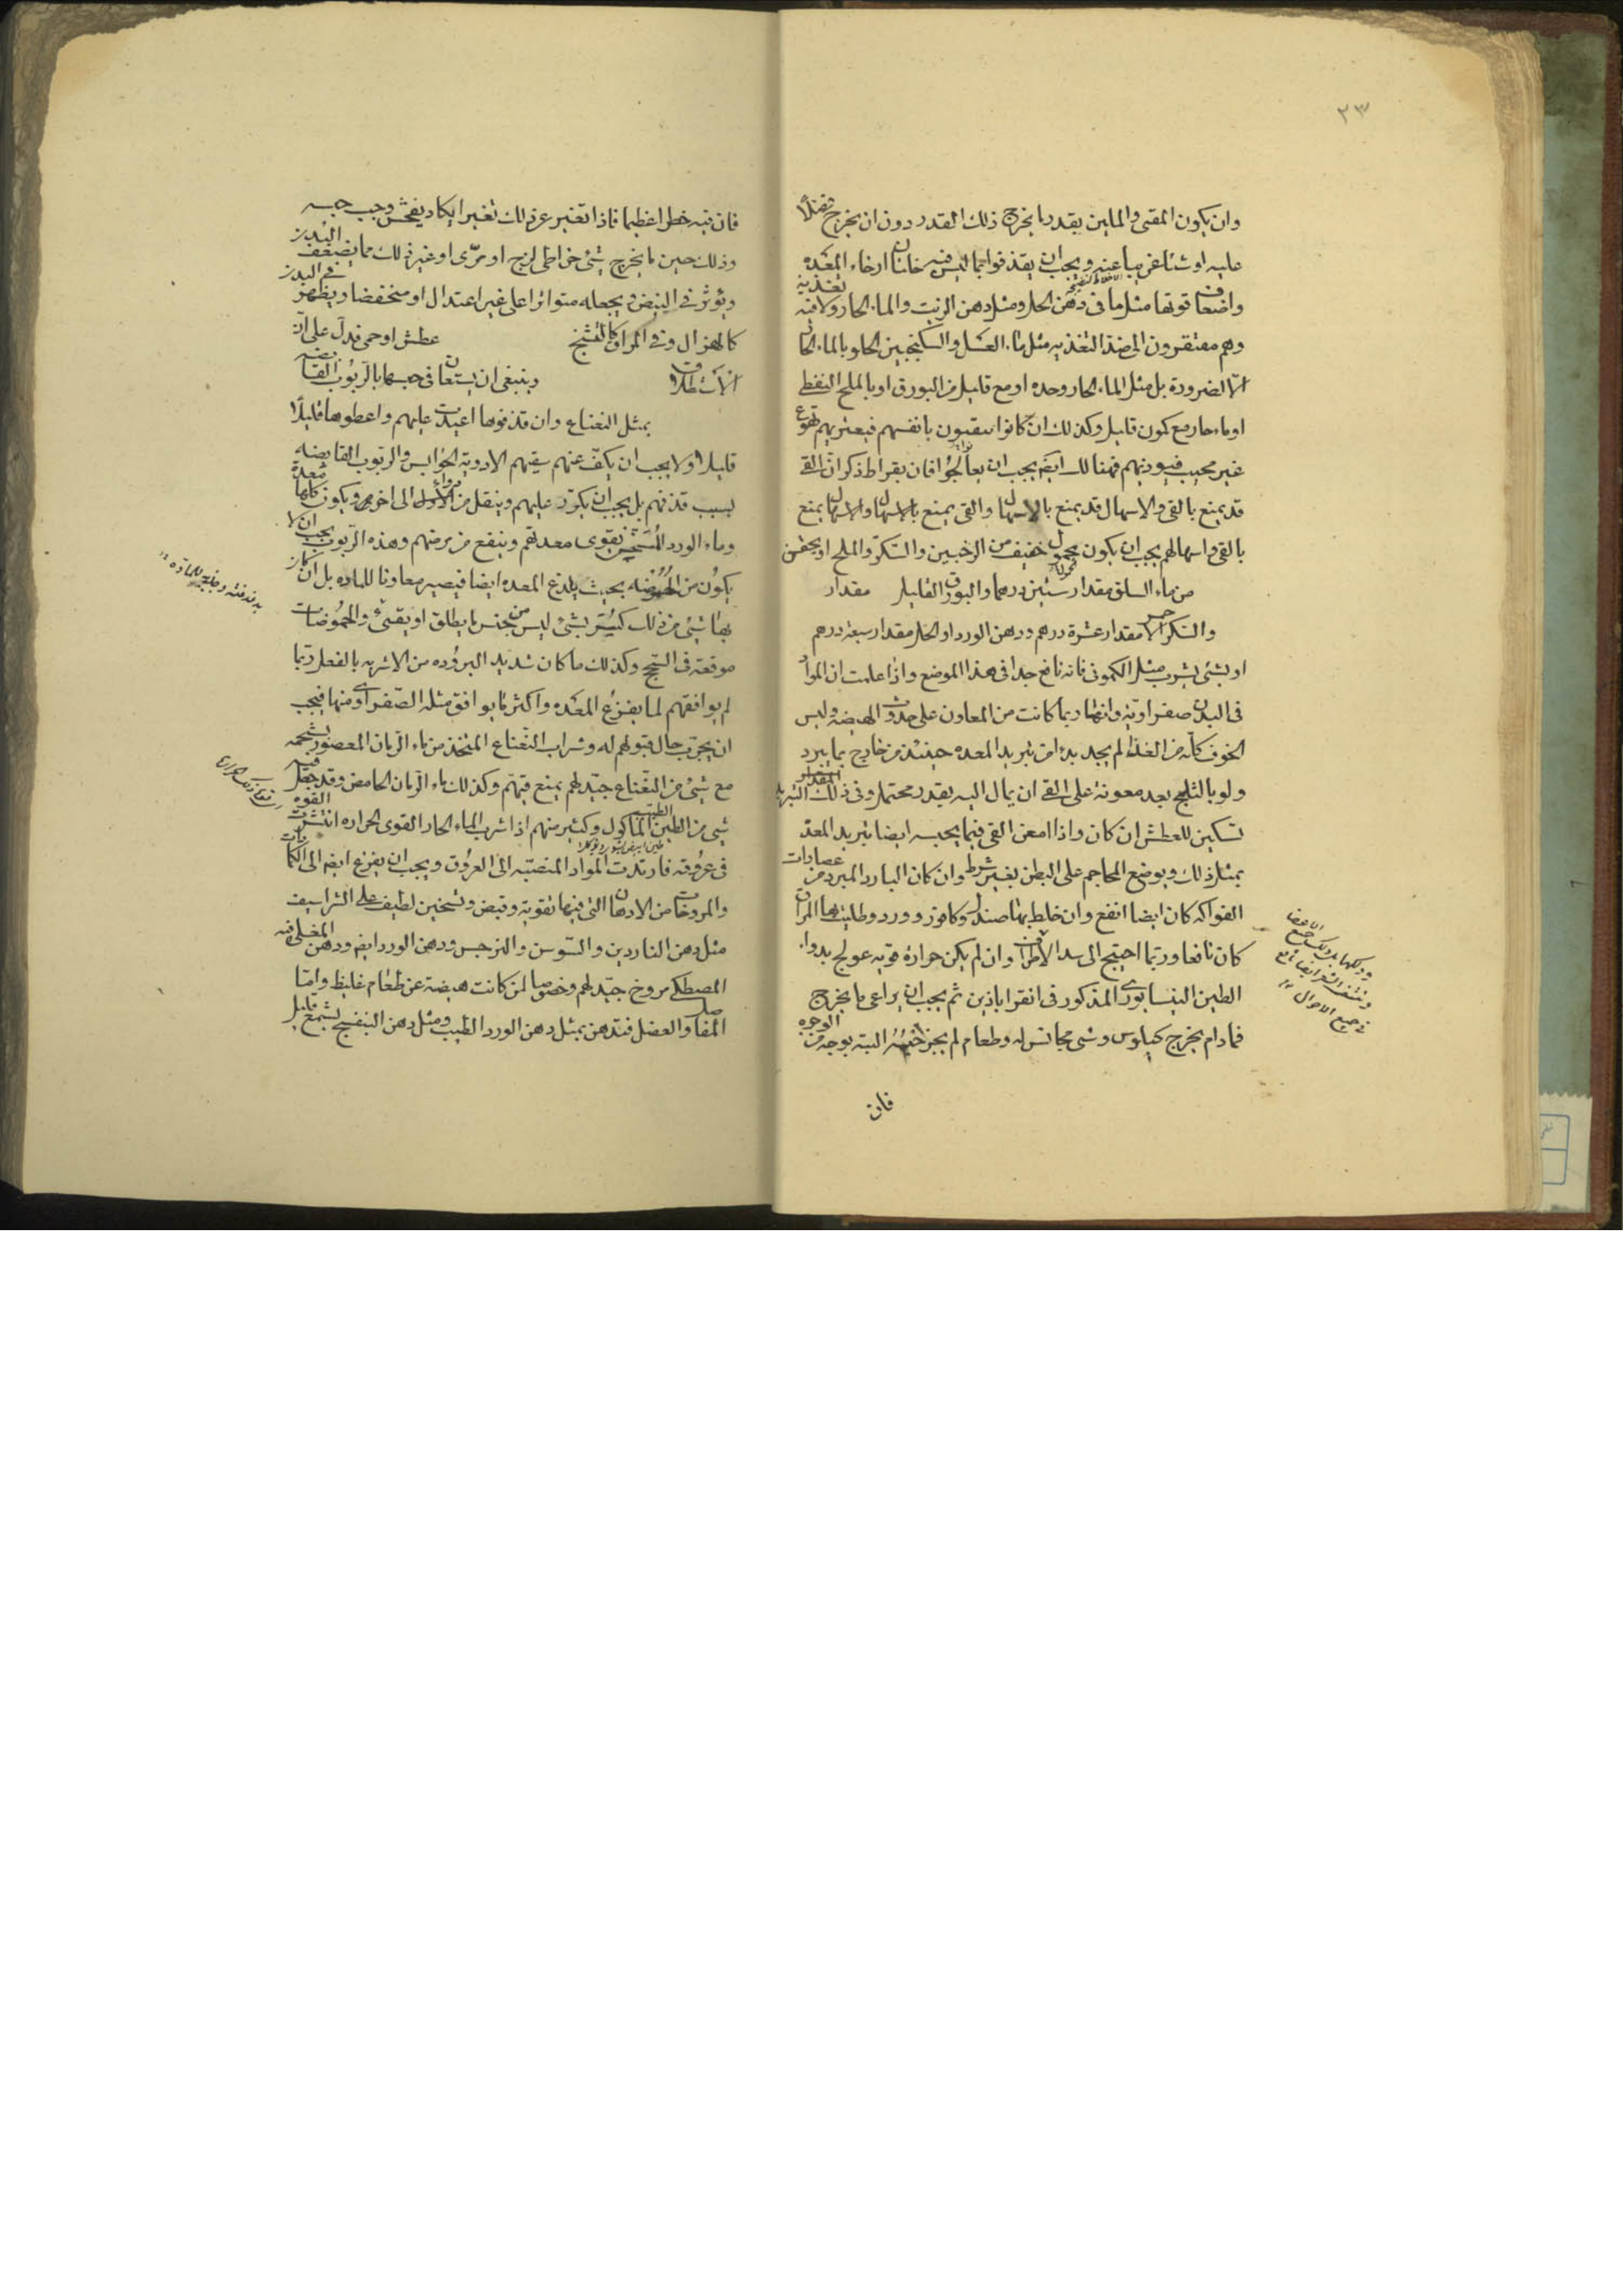 ٢٣
وان يكون المقيى والملين بقدر ما يخرج ذلك القدر دون ان يخرج فضلًا
عليه او شيئا غريبا عنه ويجب ان يقذفوا بما ليس فيه خاينا ارخاء المعده
واضعاف قوتها مثل ما فى دهن الحل ومثل دهن الزيت والماء الحار ولا فيه تغذيه
وهم مفتقرون الى ضد التغذيه مثل ماء العسل والسكنجبين الحلو بالماء الحار
الّا لضرورة بل مثل الماء الحار وحده او مع قليل من البورق او بالملح النفطى
او ماء حار مع كمون قليل وكذلك ان كانوا يتقيون بانفسهم فيعتريهم تهوع
غير مجيب فيوذيهم فهنالك ايضا يجب ان يعالجوا فان بقراط ذكر ان القى
قد يمنع بالقى والاسهال قد يمنع بالاسهال والقى يمنع بالاسهال والاسهال يمنع
بالقى واسهالهم يجب ان يكون بحمول خفيف من الترنجبين والسكر والملح او بحقن
من ماء السلق مقدار ستين درهما والبورق القليل مقدار
والسكر الاحمر مقدار عشرة درهم ودهن الورد او الحل مقدار سبعة درهم
او بشئ يشرب مثل الكمونى فانه نافع جدا فى هذا الموضع واذا علمت ان المواد
فى البدن صفراويّه وانها ربما كانت من المعاون على حدوث الهيضه وليس
الخوف كلّه من الغذاء لم يجد بدا من تبريد المعده حينئذ من خارج بما يبرد
ولو بالثلج بعد معونة على القى ان مال اليه بقدر محتمل وفى ذلك التبريد
تسكين للعطش ان كان واذا امعن القى فيما يحبسه ايضا تبريد المعدة
بمثل ذلك وبوضع المحاجم على البطن بغير شرط وان كان البارد المبرد من عصارات
الفواكه كان ايضا انفع وان خلط بها صندل وكافور وورد وطليت بها المراق
كان نافعا وربّما احتيج الى شد الاطراف وان لم يكن حرارة قويه عولج بدواء
الطين النيسابورى المذكور فى انقراباذين ثم يجب ان يراعى ما يخرج
فما دام يخرج كيلوس وشى مجانس له وطعام لم يجز حبسه البته بوجه من الوجوه
فان
فان فيه خطرا عظيما فاذا تغير عن ذلك تغيرا يكاد يفحش وجب حبسه
وذلك حين ما يخرج شئ خراطى لزج او مرّى او غير ذلك مما يضعف البدن
ويؤثر فى النبض ويجعله متواترا على غير اعتدال او منخفضا ويظهر فى البدن
كالهزال وفى المراق كالتشنج عطش او حمى فدلّ على انّ
الاستطلاق وينبغى ان يستعان فى حبسها بالربوب القابضه
بمثل النعناع وان قذفوها اعيدت عليهم واعطوها قليلًا
قليلا ولا يجب ان يكفّ عنهم سقيهم الادوية الحوابس والربوب القابضه
بسبب قذفهم بل يجب ان يكرّر عليهم وينقل من دواء الى اخر ويكون كلها معدة
وماء الورد المسخن يقوى معدتهم وينفع من مرضهم وهذه الربوب يجب ان لا
يكون من الحموضه بحيث يلذع المعده ايضا فيصير معاونا للماده بل ان كان
بها شئ من ذلك كسر بشئ ليس من جنس ما يطلق او يقئ والحموضات
موقعة فى السحج وكذلك ما كان شديد البروده من الاشربه بالفعل ربّما
لم يوافقهم لما يقرع المعده واكثر ما يوافق مثله الصفراوى منها فيجب
ان يجرّب حال قبولهم له وشراب النعناع المتخذ من ماء الرمان المعصور بشحمه
مع شئ من النعناع جيّد لهم يمنع قيهم وكذلك ماء الرمان الحامض وقد جعل فيه
شئ من الطين الطيب الماكول وكثير منهم اذا شرب الماء الحار القوى الحراره انتشرت القوه
فى عروقه فارتدت المواد المنصبّه الى العروق ويجب ان يفزع ايضا الى الكمادات
والمروخات من الادهان التى فيها تقويه وقبض وتسخين لطيف على الشراسيف
مثل دهن الناردين والسوسن والنرجس ودهن الورد ايضا ودهن المغلى فيه
المصطكى مروخ جيّد لهم وخصوصا لمن كانت هيضته عن طعام غليظ وامّا
المفاصل والعضل فتدهن بمثل دهن الورد الطيب ومثل دهن البنفسج بشمع قليل